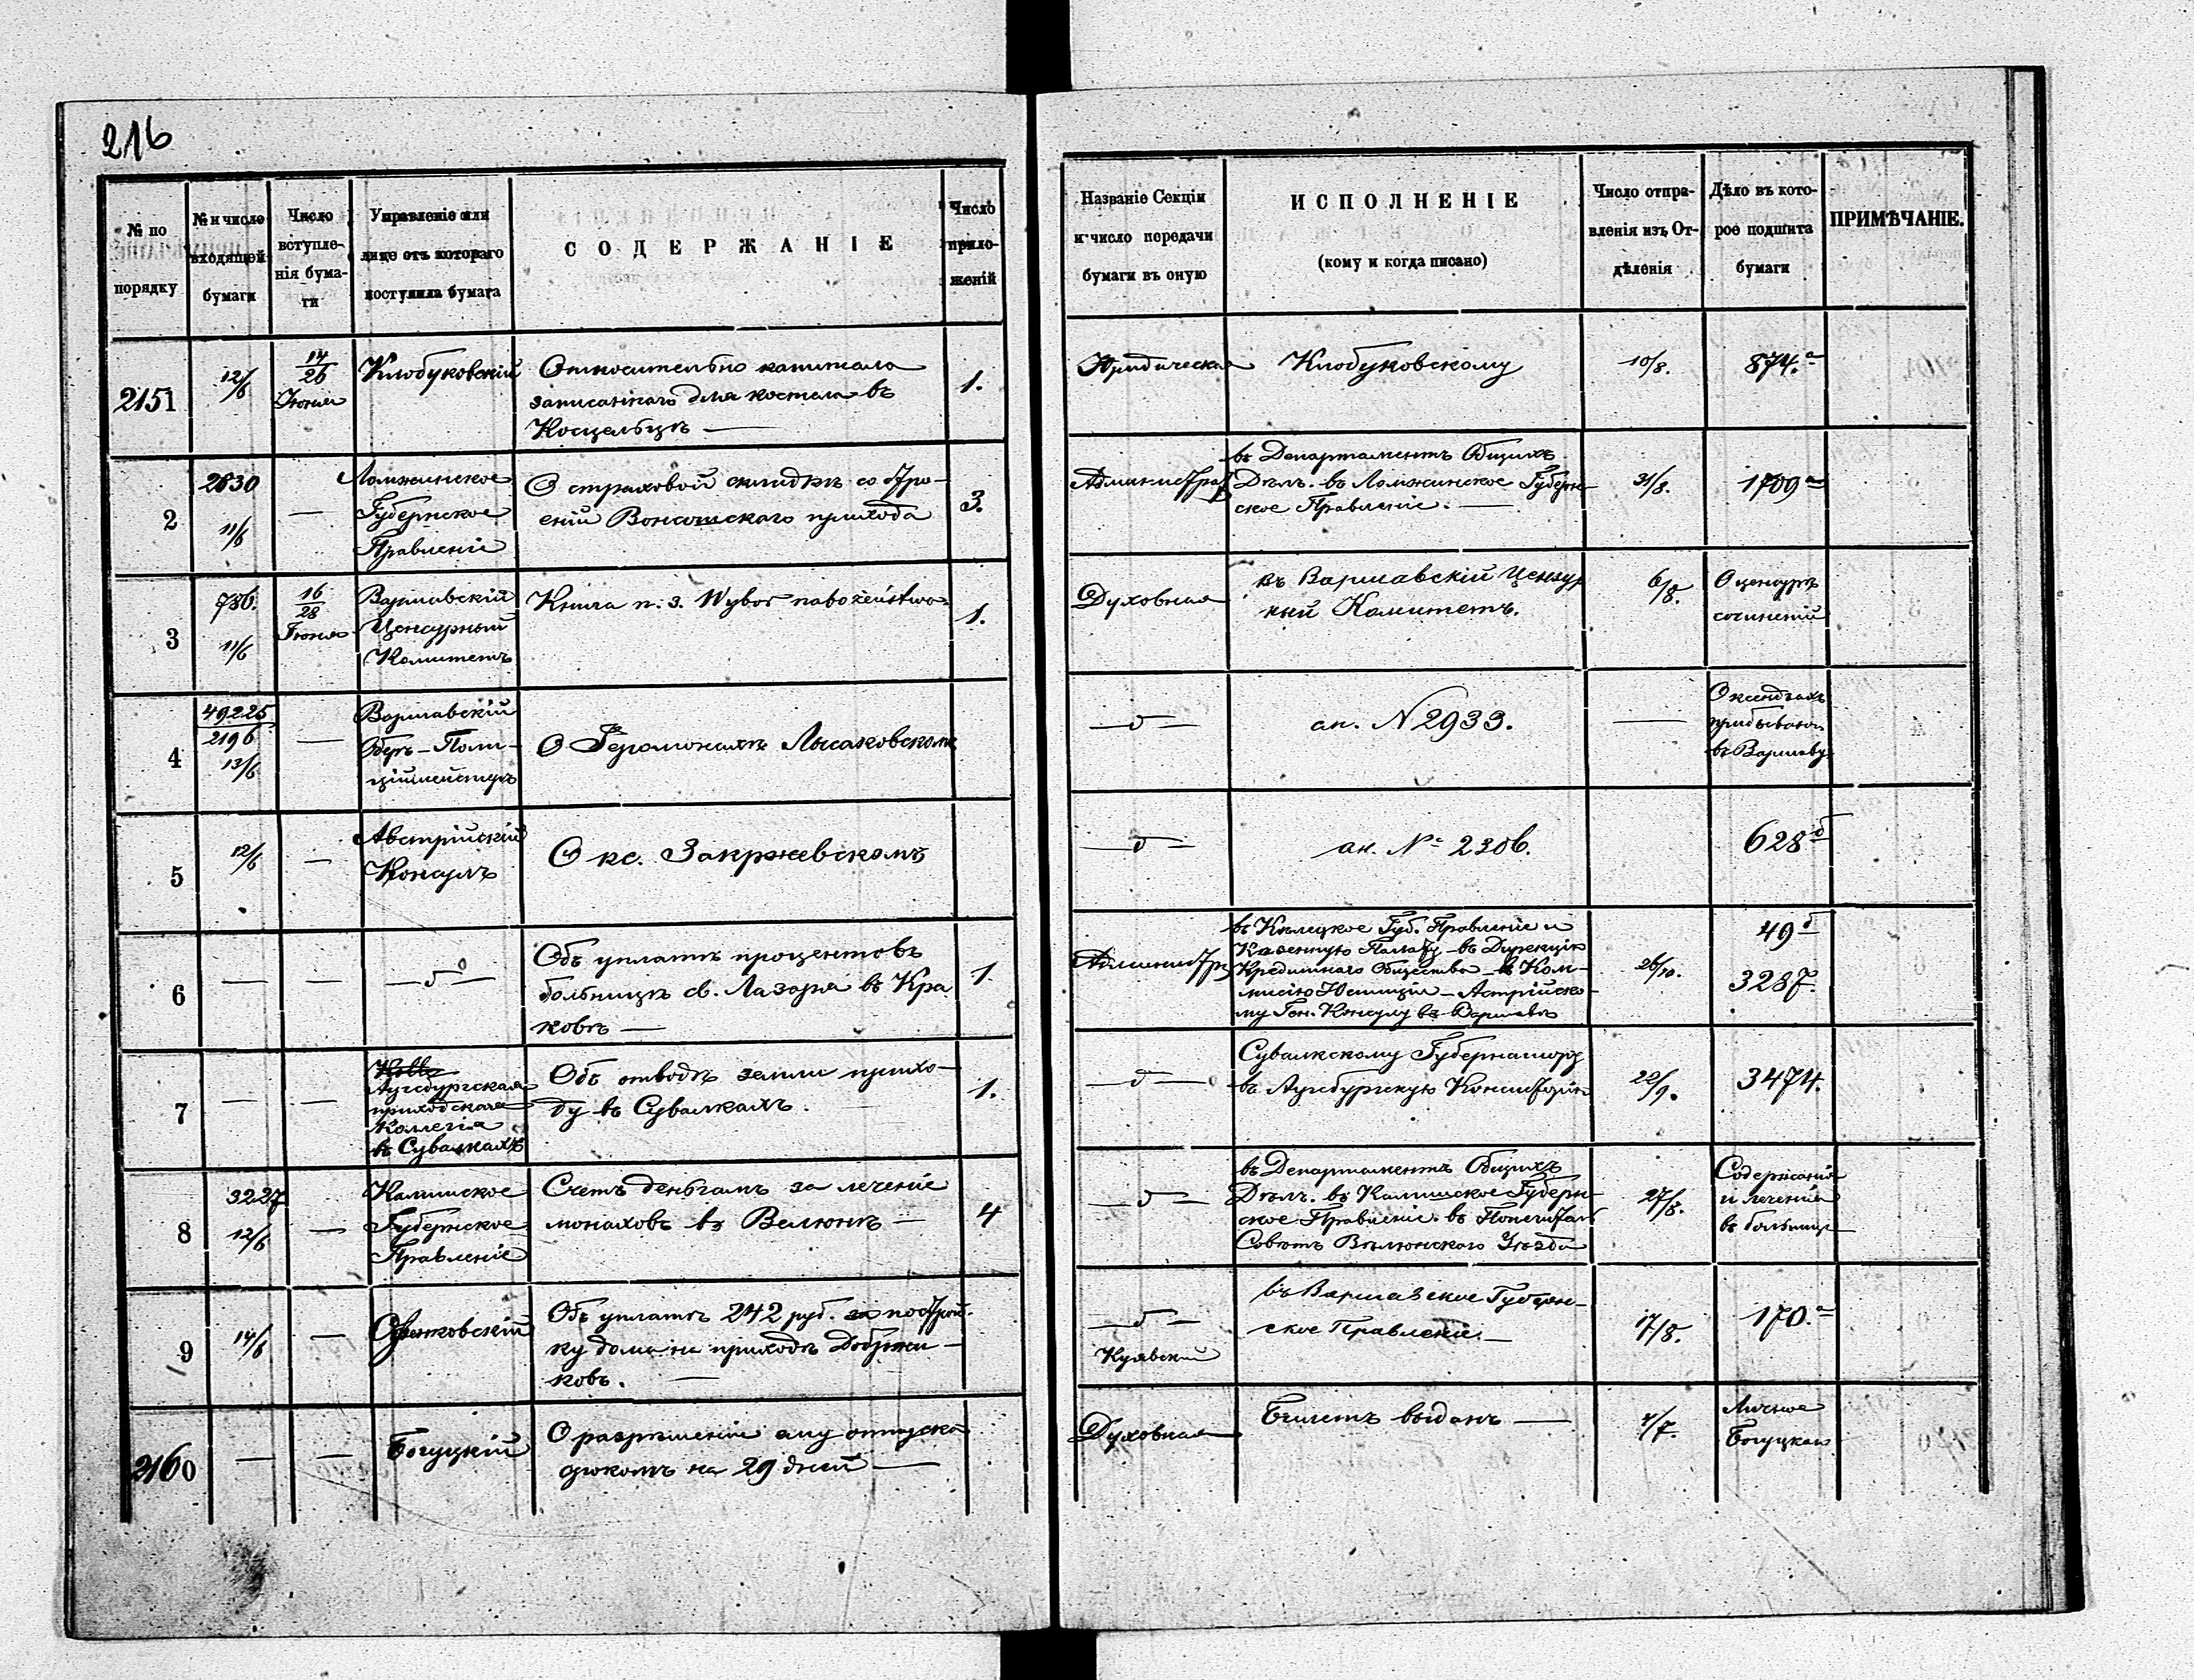 216
№ по
порядку
№ и число
входящей
бумаги
Число
вступле-
нія бума-
ги
Управленіе или
лице отъ котораго
поступила бумага
СОДЕРЖАНІЕ
Число
прило-
женій
Названіе Секціи
и число передачи
бумаги въ оную
ИСПОЛНЕНІЕ
(кому и когда писано)
Число отпра-
вленія изъ От-
дѣленія
Дѣло въ кото-
рое подшита
бумаги
ПРИМѢЧАНІЕ.
2151
12/6
14/26
Іюня
Клобуковскій
Относительно капитала
записаннаго для костела въ
Косцельцѣ —
1.
Юридическая
Клобуковскому
10/8.
874.а
2
2630
11/6
—
Ломжинское
Губернское
Правленіе
О страховой скидкѣ со стро-
еній Вонсошскаго прихода
3.
Администра
въ Департаментъ Общихъ
Дѣлъ. въ Ломжинское Губерн-
ское Правленіе. —
31/8.
1709а
3
786.
11/6
16/28
Іюня
Варшавскій
Ценсурный
Комитетъ
Книга п. з. Wybor nabożeństwa.
1.
Духовная
въ Варшавскій Ценсур
ный Комитетъ.
6/8.
О ценсурѣ
сочиненій
4
49225
2196
13/6
—
Варшавскій
Оберъ-Поли-
ціймейстеръ
О Іеромонахѣ Лысаковскомъ
—д—
ан. N 2933.
—
О ксендзахъ
прибываю
въ Варшаву
5
12/6
—
Австрійскій
Консулъ
О кс. Закржевскомъ
—д—
ан. № 2306.
628б
6
—
—
—д—
Объ уплатѣ процентовъ
больницѣ св. Лазаря въ Кра
ковѣ —
1.
Администр
въ Кѣлецкое Губ. Правленіе и
Казенную Палату – въ Дирекцію
Кредитнаго Общества – въ Ком-
мисію Юстиціи – Астрійско-
му Ген. Консулу въ Варшавѣ
26/10.
49б
3287.
7
—
—
Аугсбургская
приходская
Коллегія
въ Сувалкахъ
Объ отводѣ земли прихо-
ду въ Сувалкахъ.
1.
—д—
Сувалкскому Губернатору
въ Аугсбургскую Консисторію
22/9.
3474.
8
3227
12/6
—
Калишское
Губернское
Правленіе
Счетъ деньгамъ за леченіе
монаховъ въ Велюнѣ —
4
—д—
въ Департаментъ Общихъ
Дѣлъ. въ Калишское Губерн-
ское Правленіе. въ Попечител
Совѣтъ Вѣлюнскаго Уѣзда
27/8.
Содержаніе
и леченіе
въ больницѣ
9
14/6
—
Объ уплатѣ 242 руб. за построй-
ку дома на приходѣ Добржи-
ковъ. —
—д—
Куявскій
въ Варшавское Губерн-
ское Правленіе. —
17/8.
170.а
2160
—
—
Богуцкій
О разрѣшеніи ему отпуска
срокомъ на 29 дней —
Духовная
Билетъ выданъ —
4/7.
Личное
Богуцкаго